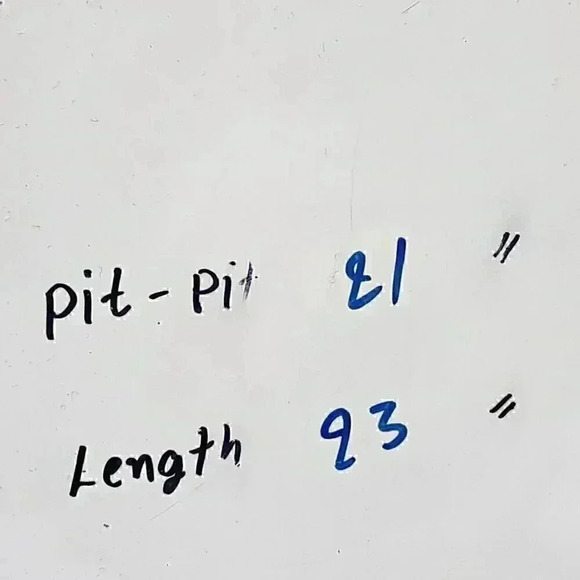 pit-pit 21 "
Length 23 "